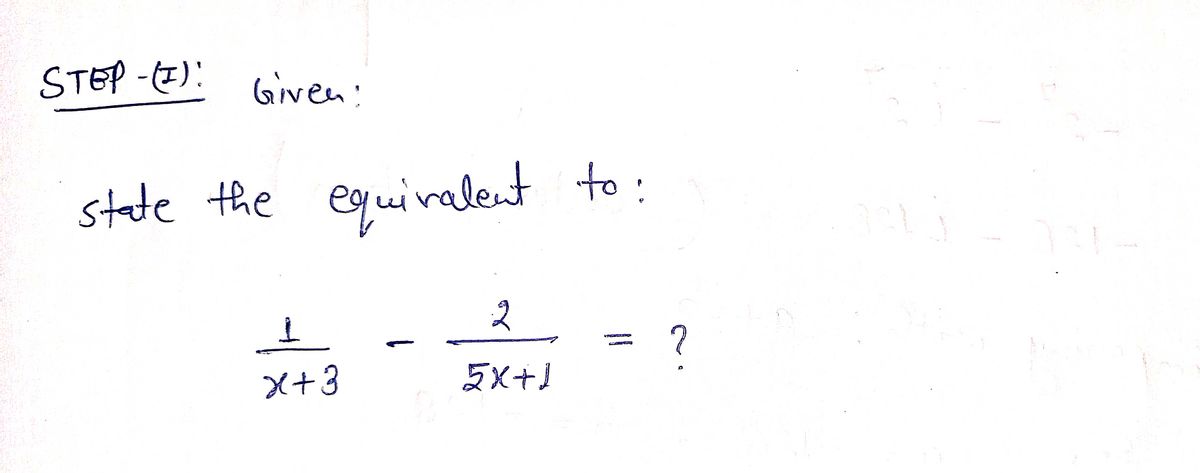 STEP-(I): Given:
state the equivalent to:
1/(x+3) - 2/(5x+1) = ?